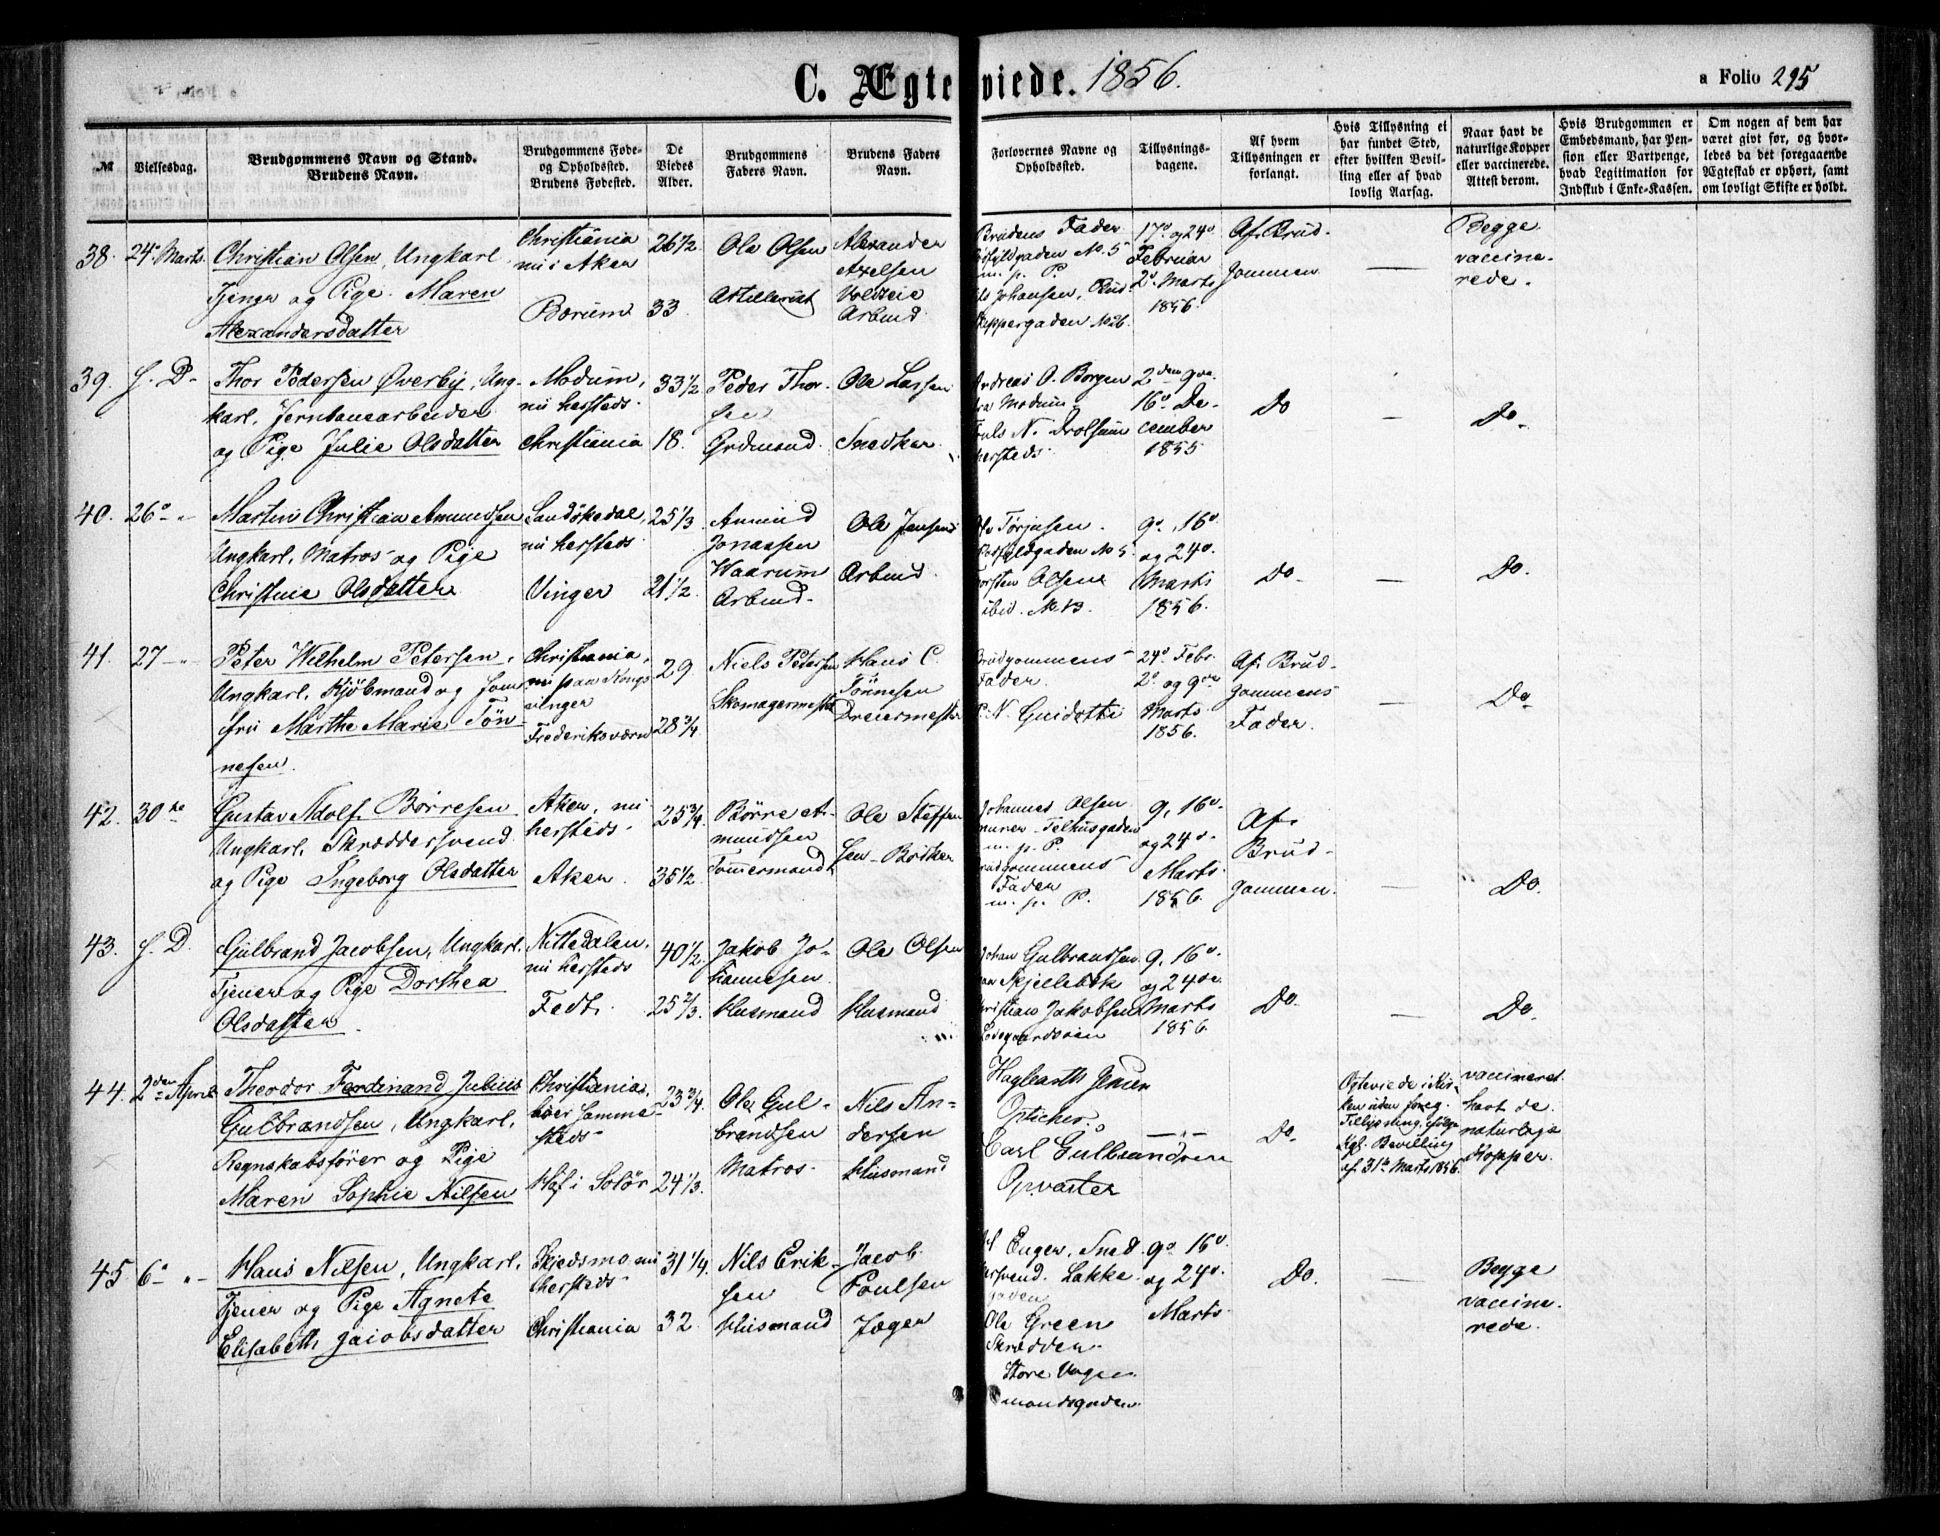 C. Ægteviede. 1856.
a Folio 295
№
Vielsesdag.
Brudgommens Navn og Stand.
Brudens Navn.
Brudgommens Føde-
og Opholdssted.
Brudens Fødested.
De
Viedes
Alder.
Brudgommens
Faders Navn.
Brudens Faders
Navn.
Forlovernes Navne og
Opholdssted.
Tillysnings-
dagene.
Af hvem
Tillysningen er
forlangt.
Hvis Tillysning ei
har fundet Sted,
efter hvilken Bevil-
ling eller af hvad
lovlig Aarsag.
Naar havt de
naturlige Kopper
eller vaccinerede.
Attest derom.
Hvis Brudgommen er
Embedsmand, har Pen-
sion eller Vartpenge,
hvad Legitimation for
Indskud i Enke-Kassen.
Om nogen af dem har
været givt før, og hvor-
ledes da det foregaaende
Ægteskab er ophørt, samt
om lovligt Skifte er holdt.
38.
24 Marts
Christian Olsen, Ungkarl
Tjener og Pige Maren
Alexandersdatter
Christiania
nu i Aker
Bærum
26 1/2
33
Ole Olsen
Artillerist
Alexander
Axelsen
Arbmd
Brudens Fader
No. 5
m. p. P.
Johansen,
gaden No 26.
17o og 24o
Februar
2o Marts
1856.
Af Brud-
gommen
—
Begge
vaccine-
rede.
39.
S. D.
Thor Pedersen Øverby, Ung-
karl, Jerntanearbeider
og Pige Julie Olsdatter
Modum,
nu hersteds.
Christiania
33 1/2
18.
Peder Thor-
sen
Grdmand.
Ole Larsen
Snedker
Andreas O. Borgen
fra Modum
Truls N. Drolsum
hersteds.
2den 9de
16o De-
cember
1855
Do
—
Do.
40.
26o "
Martin Christian Amundsen
Ungkarl, Matros og Pige
Christine Olsdatter
Sandøkedal,
nu hersteds
Vinger
25 1/3
21 1/2
Amund
Jonassen
Waarum
Arbmd.
Ole Jensen
Arbmd.
Ole Tørjusen.
gaden No 5
Torsten Olsen
ibid. No 13.
9o, 16o
og 24o
Marts
1856.
Do.
—
Do.
41.
27 "
Peter Wilhelm Petersen,
Ungkarl, Kjøbmand og Jom-
fru Marthe Marie Tøn-
nesen.
Christiania,
nu paa Kongs-
vinger
Frederiksværn
29
28 3/4
Niels Petersen
Skomagermester
Hans C.
Tønnesen
Dreiermester
Brudgommens
Fader.
N. Guidotti
24o Febr.
2o og 9de
Marts
1856.
Af Brud-
gommens
Fader.
—
Do
42.
30te
Gustav Adolf Børresen
Ungkarl, Skræddersvend
og Pige Ingeborg Olsdatter
Aker, nu
hersteds.
Aker.
25 3/4
35 1/2
Børre A-
mundsen
Tømmermand
Ole Steffen-
sen Bødker
Johannes Olsen
Murer Telthusgaden
m. p. P.
Brudgommens
Fader
m. p. P.
9, 16o
og 24o
Marts
1856.
Af
Brud-
gommen.
—
Do.
43.
S. D.
Gulbrand Jacobsen, Ungkarl,
Tjener og Pige Dorthea
Olsdatter.
Nittedalen,
nu hersteds
Fedt.
40 1/2
25 2/3
Jakob Jo-
hannesen
Husmand
Ole Olsen
Husmand
Johan Gulbrandsen
Skjellebek
Christian Jakobsen
9, 16o
og 24de
Marts
1856.
Do.
—
Do.
44.
2den April
Theodor Ferdinand Julius
Gulbrandsen, Ungkarl,
Regnskabsfører og Pige
Maren Sophie Nilsen
Christiania,
boer samme-
steds
Hof i Solør
23 3/4
24 1/3
Ole Gul-
brandsen
Matros.
Nils An-
dersen
Husmand
Haglearth Jensen
Opticher.
Carl Gulbrandsen
Opvarter
— " —
Do.
Ægteviede i Kir-
ken uden foreg.
Tillysning, ifølge
Kgl. Bevilling
af 31te Marts 1856.
vaccineret
havt de
naturlige
Kopper.
45.
6o "
Hans Nilsen, Ungkarl,
Tjener og Pige Agnete
Elisabeth Jacobsdatter
Skjedsmo, nu
hersteds.
Christiania
31 1/4
32
Nils Erik-
sen
Husmand
Jacob
Poulsen
Jæger
Enger, Sned-
kersvend. Lakke-
gaden
Ole Green
Skrædder
Store Vogn-
mandsgaden
9o 16o
og 24o
Marts.
Do.
—
Begge
vaccine-
rede.